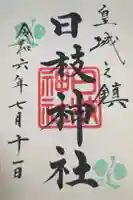 皇城之鎮
日枝神社
令和六年七月十一日